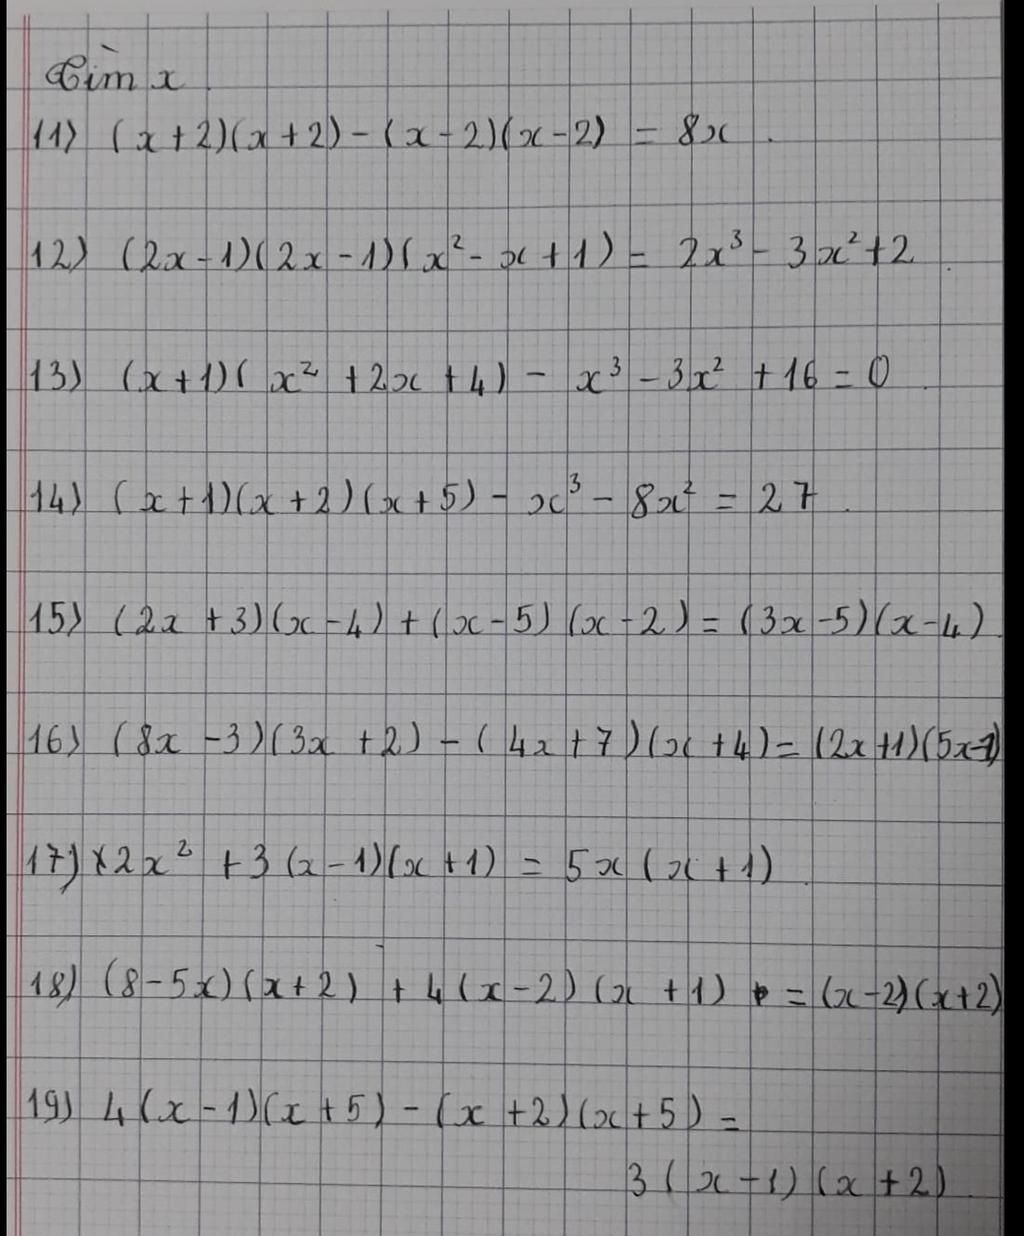 Tìm x
11) (x+2)(x+2) - (x-2)(x-2) = 8x.
12) (2x-1)(2x-1)(x² - x + 1) = 2x³ - 3x² + 2
13) (x+1)( x² + 2x + 4) - x³ - 3x² + 16 = 0.
14) (x+1)(x+2)(x+5) - x³ - 8x² = 27.
15) (2x + 3)(x-4) + (x-5)(x-2) = (3x-5)(x-4)
16) (8x - 3)(3x + 2) - (4x + 7)(x + 4) = (2x+1)(5x-1)
17) 2x² + 3(x-1)(x+1) = 5x(x+1)
18) (8-5x)(x+2) + 4(x-2)(x+1) = (x-2)(x+2)
19) 4(x-1)(x+5) - (x+2)(x+5) =
3(x-1)(x+2)